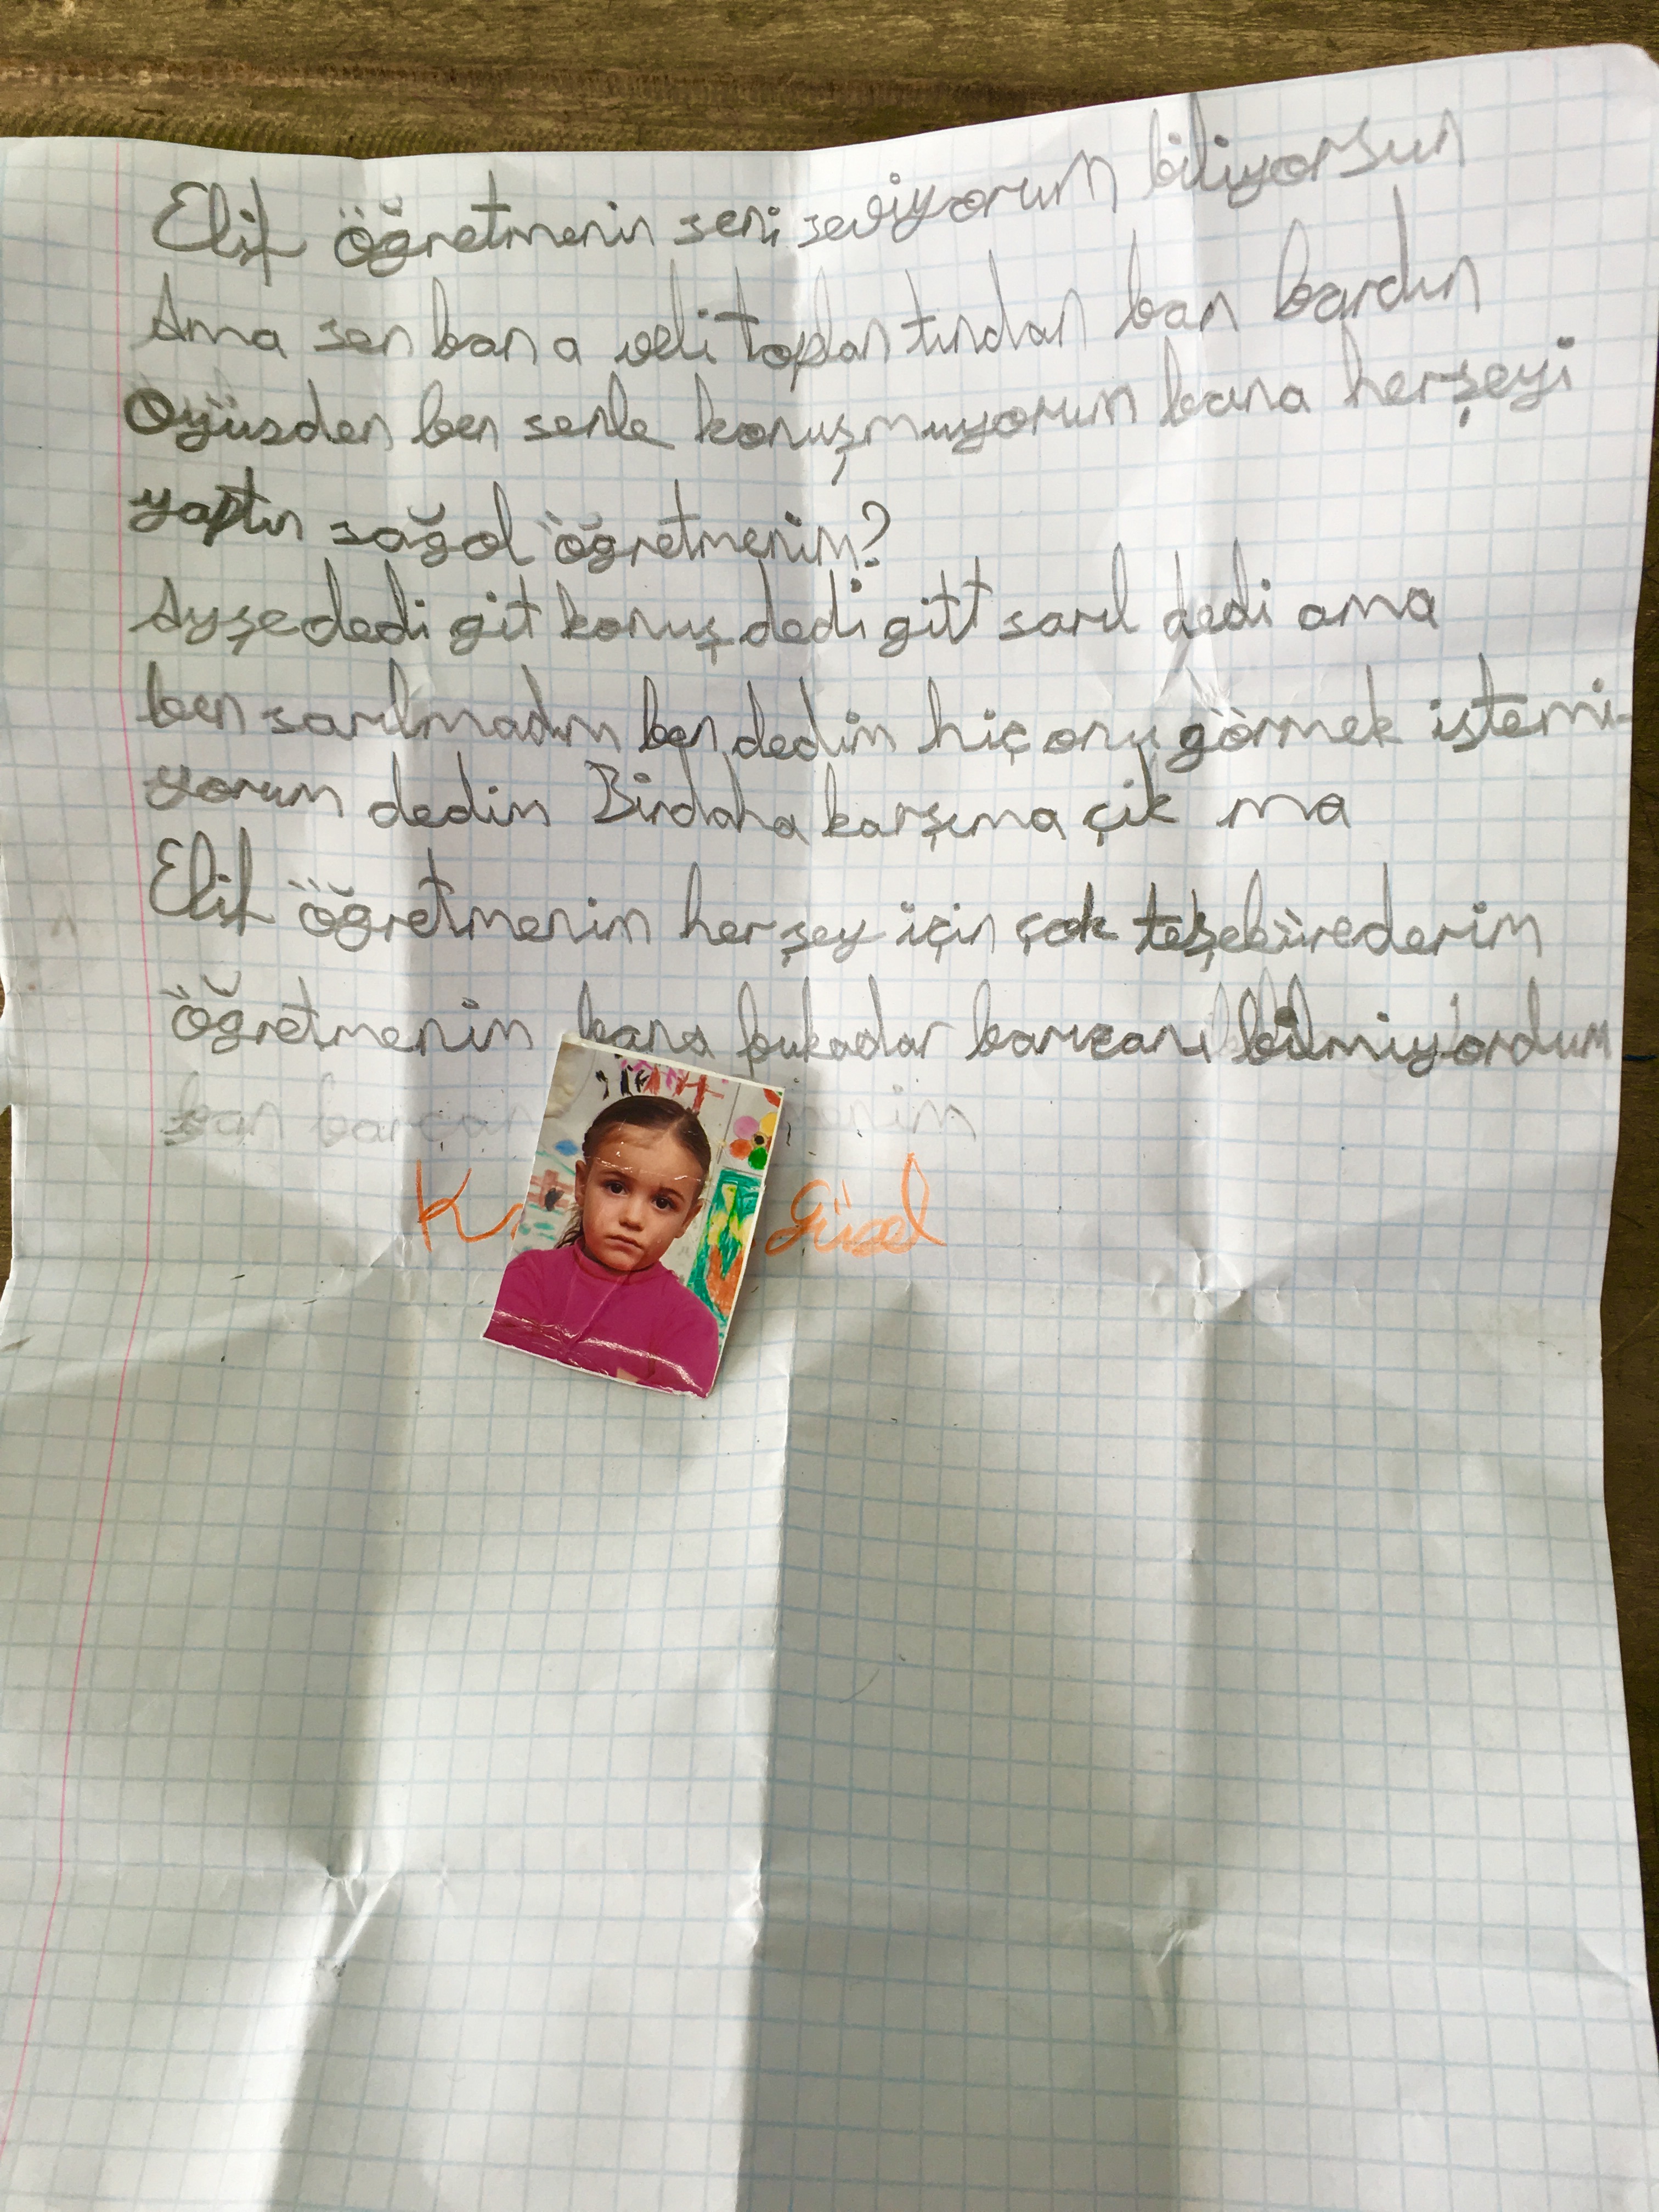 Elif öğretmenin seni seviyorum biliyorsun
Ama sen bana veli toplantından ban bardın
Oyüzden ben senle konuşmuyorum bana herşeyi
yaptın sağol öğretmenim?
Ayşe dedi git konuş dedi gitt sarıl dedi ama
ben sarılmadım ben dedim hiç onu görmek istemi-
yorum dedim Birdaha karşıma çik ma
Elif öğretmenim herşey için çok teşekürederim
öğretmenim bana bukadar barıcanı bilmiyordum
ban barcan menim
Güzel